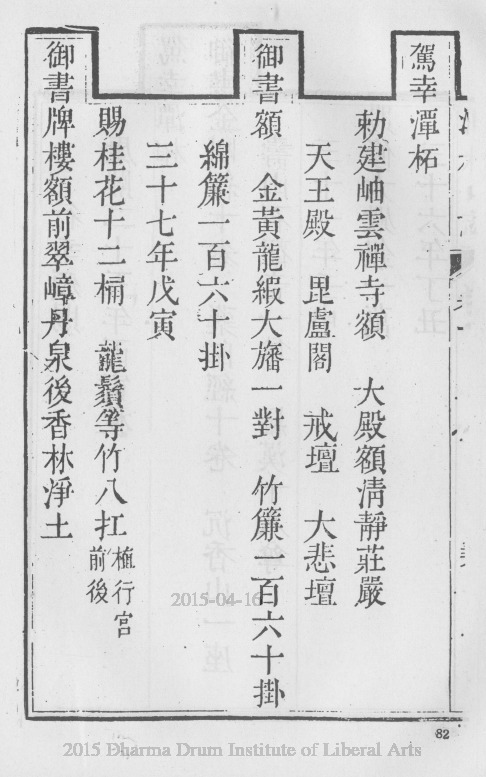 駕幸潭柘
勅建岫雲禪寺額　大殿額清靜莊嚴
天王殿　毘盧閣　戒壇　大悲壇
御書額　金黃龍緞大旛一對　竹簾一百六十掛
綿簾一百六十掛
三十七年戊寅
賜桂花十二桶　龍鬚等竹八扛植行宮前後
御書牌樓額前翠嶂丹泉後香林淨土
82
2015-04-16
2015 Dharma Drum Institute of Liberal Arts